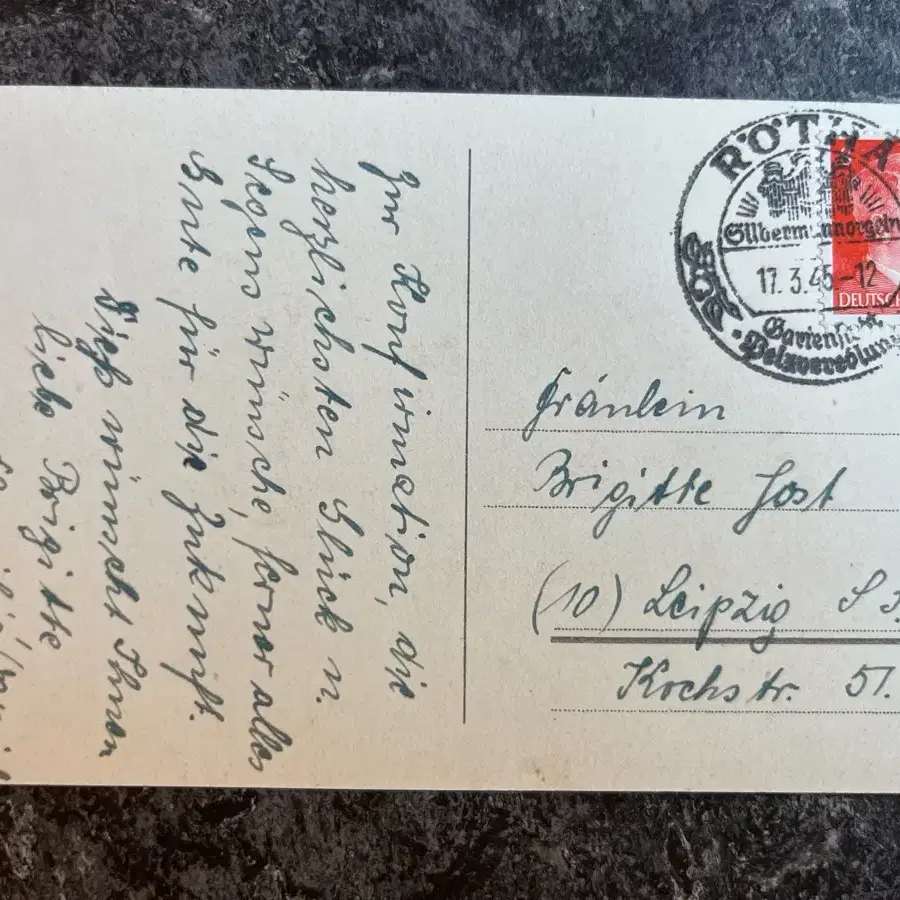 Zur Konfirmation, die
herzlichsten Glück u.
Segens wünsche, ferner alles
Gute für die Zukunft.
Dieß wünscht Ihnen
liebe Brigitte
RÖTHA
Silbermannorgeln
17.3.45-12
Gartenstadt
Pelzveredlung
DEUTSCH
Fräulein
Brigitte Jost
(10) Leipzig S 3.
Kochstr. 51.